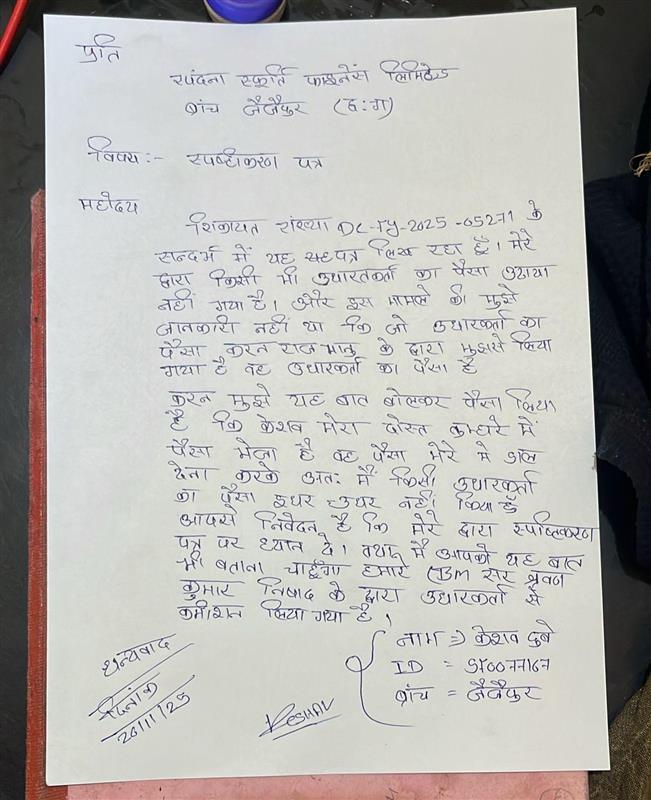 प्रति
स्पंदना स्फूर्ति फाइनेंस लिमिटेड
ब्रांच जैजैपुर (छ:ग)
विषय:- स्पष्टीकरण पत्र
महोदय
शिकायत संख्या DC-Ty-2025-05271 के
सन्दर्भ में यह पत्र लिख रहा हूँ। मेरे
द्वारा किसी भी उधारकर्ता का पैसा उठाया
नहीं गया है। और इस मामले की मुझे
जानकारी नहीं था कि जो उधारकर्ता का
पैसा करन राज भानु के द्वारा मुझसे लिया
गया है वह उधारकर्ता का पैसा है
करन मुझे यह बात बोलकर पैसा लिया
है कि केशव मेरा दोस्त तुम्हारे में
पैसा भेजा है वह पैसा मेरे में डाल
देना करके अतः मैं किसी उधारकर्ता
का पैसा इधर-उधर नहीं किया हूँ
आपसे निवेदन है कि मेरे द्वारा स्पष्टिकरण
पत्र पर ध्यान दे। तथा मैं आपको यह बात
भी बताना चाहूँगा हमारे BM सर श्रवण
कुमार निषाद के द्वारा उधारकर्ता से
कमीशन लिया गया है।
धन्यवाद
दिनांक
20/11/25
Keshav
नाम => केशव दुबे
ID = S70077167
ब्रांच = जैजैपुर